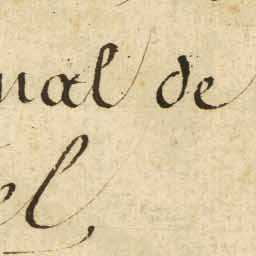 nal de
el,